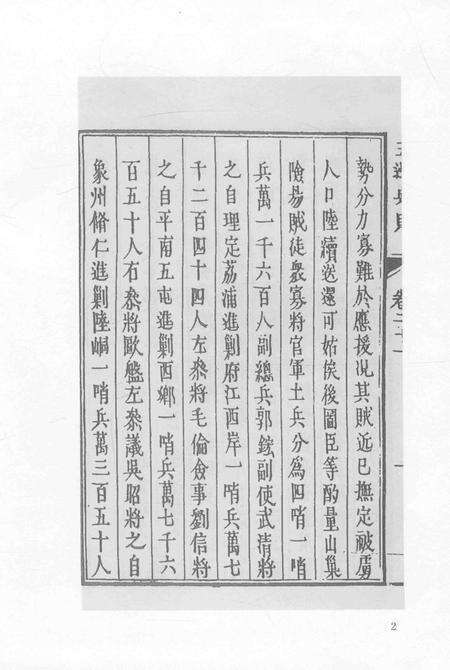 卷二十一
勢分力寡難於應援况其賊近已撫定被虜
人口陸續送還可姑俟後圖臣等酌量山巢
險易賊徒衆寡將官軍土兵分爲四哨一哨
兵萬一千六百人副總兵郭鋐副使武清將
之自理定荔浦進剿府江西岸一哨兵萬七
千二百四十四人左叅將毛倫僉事劉信將
之自平南五屯進剿西鄉一哨兵萬七千六
百五十人右叅將歐磐左叅議吳昭將之自
象州脩仁進剿陸峒一哨兵萬三百五十人
2